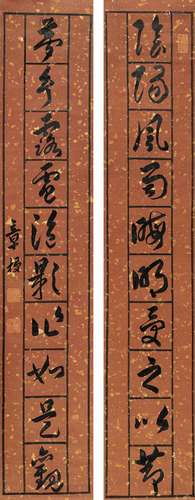 陰陽風雨晦明受之以節
夢幻露電泡影作如是觀
章梫